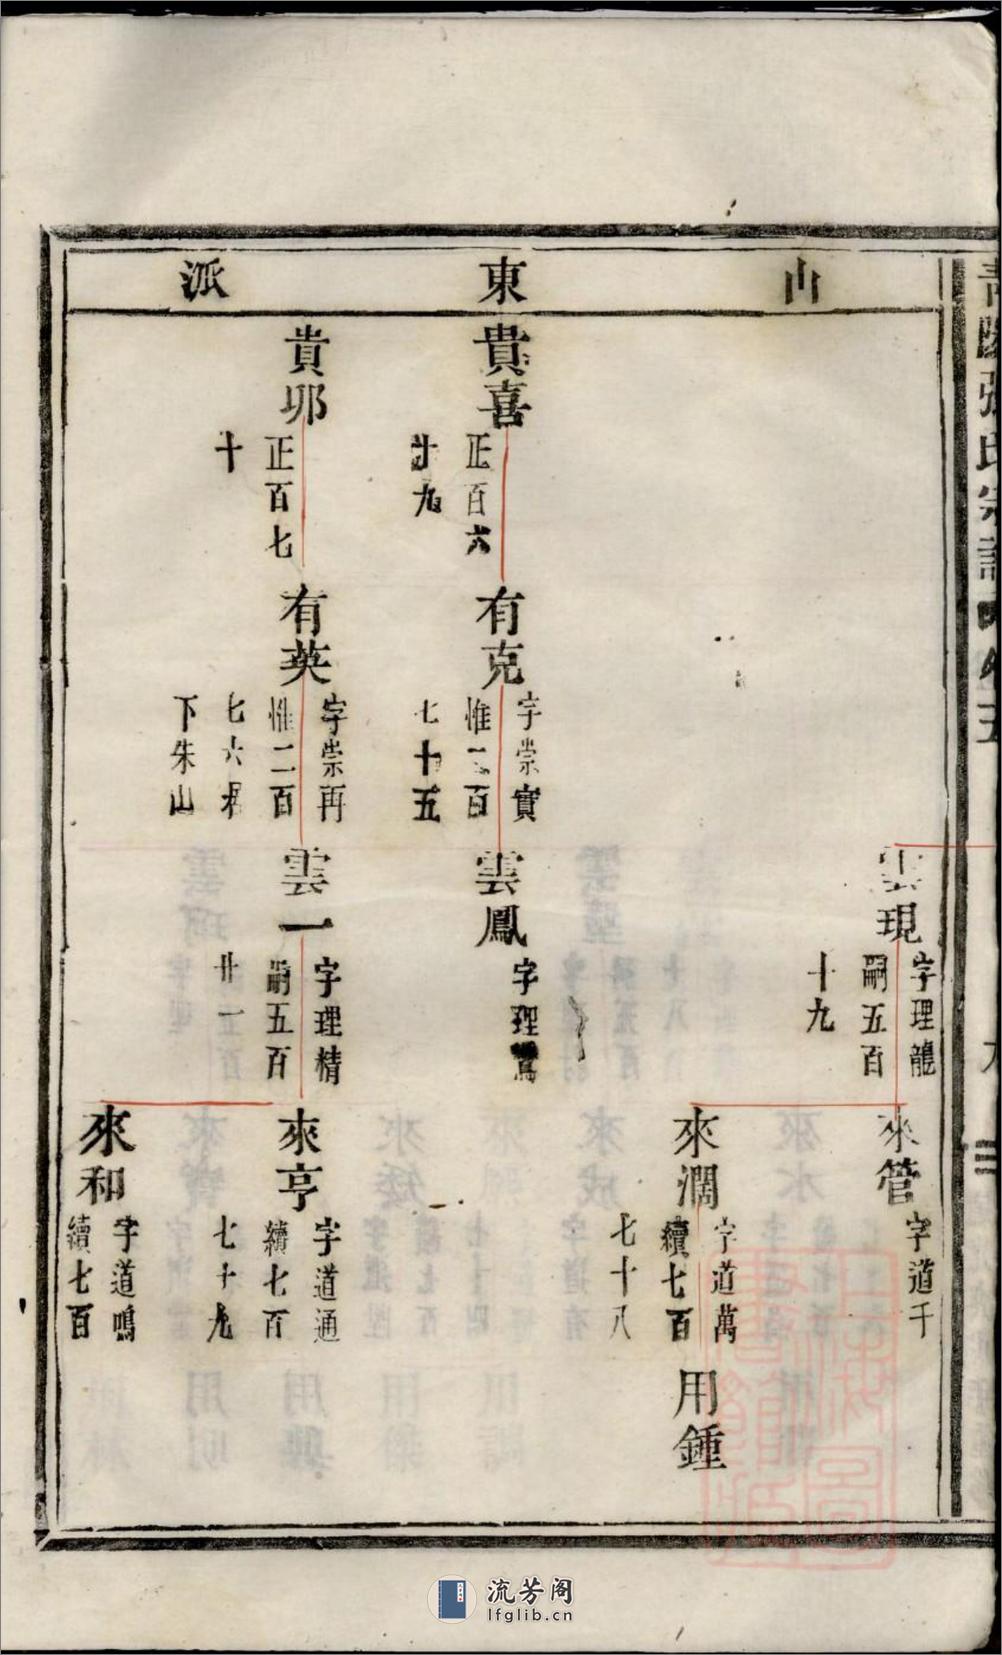 山東派
雲現
字理龍
嗣五百
十九
來管
字道千
來濶
字道萬
續七百
七十八
用鍾
貴喜
正百六
廿九
有克
字崇實
惟二百
七十五
雲鳳
字理鸞
貴邜
正百七
十
有英
字崇再
惟二百
七六
下朱山
雲一
字理精
嗣五百
廿一
來亨
字道通
續七百
七十九
來和
字道鳴
續七百
張氏宗譜
流芳阁
lfglib.cn